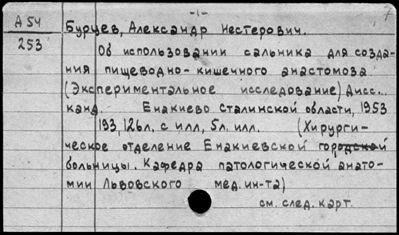 -1-
А 54
253
Бурцев, Александр Нестерович.
Об использовании сальника для созда-
ния пищеводно-кишечного анастомоза
(Экспериментальное исследование) Дисс...
канд. Енакиево Сталинской области, 1953
193, 126л. с илл, 5л. илл. (Хирурги-
ческое отделение Енакиевской городской
больницы. Кафедра патологической анато-
мии Львовского мед. ин-та)
см. след. карт.